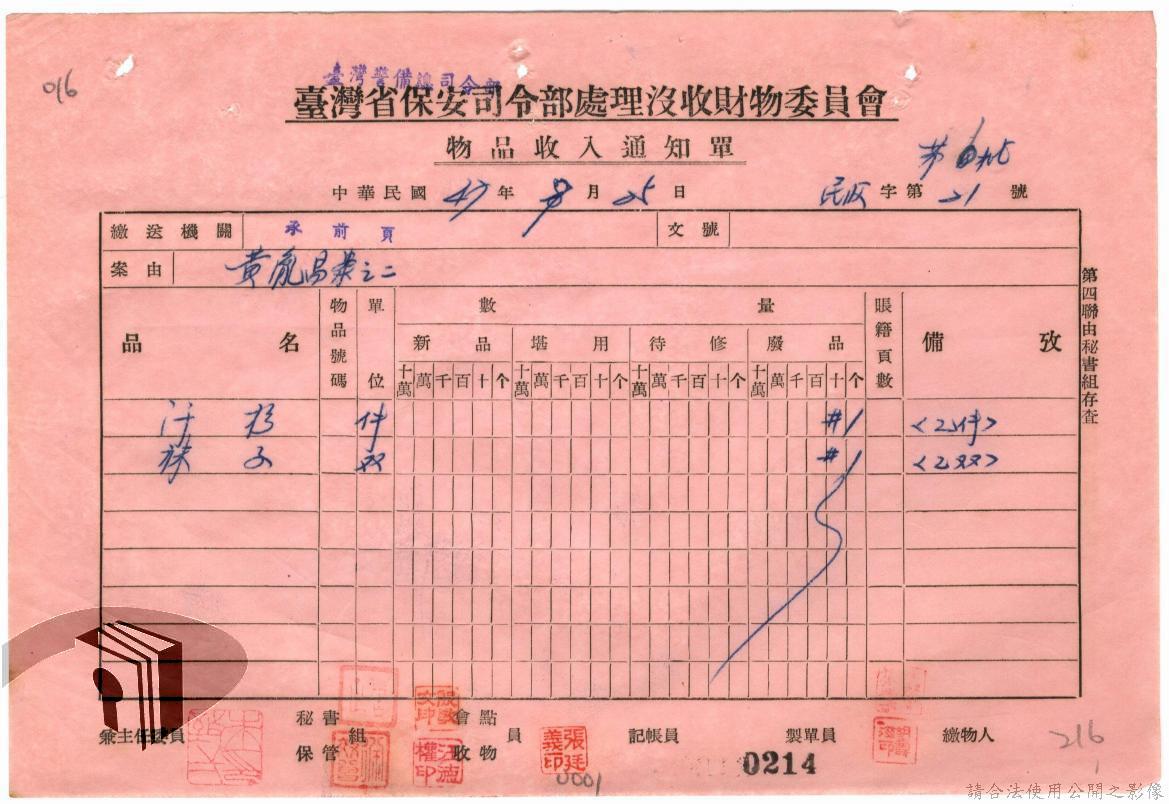 016
臺灣警備總司令部
臺灣省保安司令部處理沒收財物委員會
物品收入通知單
中華民國 47 年 8 月 25 日
民政 字第 21 號
繳送機關 承前頁 文號
案由 黃胤昌案之二
品名 物品號碼 單位 數量 賬籍頁數 備攷
新品 堪用 待修 廢品
十萬 萬 千 百 十 个 十萬 萬 千 百 十 个 十萬 萬 千 百 十 个 十萬 萬 千 百 十 个
汗衫 件 #1 <2件>
袜子 双 #1 <2双>
第四聯由秘書組存查
兼主任委員 秘書組 保管 會點 收物 員 記帳員 製單員 繳物人
張廷義印
汪德權印
0001
0214
216
請合法使用公開之影像